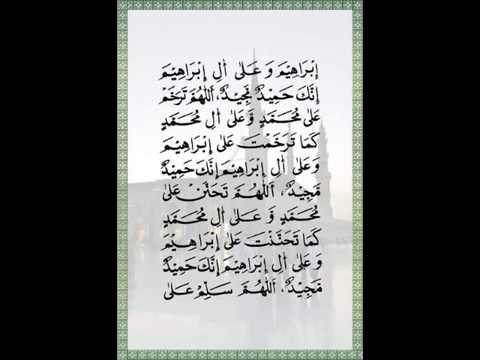 إِبْرَاهِيْمَ وَ عَلٰى اٰلِ إِبْرَاهِيْمَ
إِنَّكَ حَمِيْدٌ مَّجِيْدٌ، اَللّٰهُمَّ تَرَحَّمْ
عَلٰى مُحَمَّدٍ وَّ عَلٰى اٰلِ مُحَمَّدٍ
كَمَا تَرَحَّمْتَ عَلٰى إِبْرَاهِيْمَ
وَعَلٰى اٰلِ إِبْرَاهِيْمَ إِنَّكَ حَمِيْدٌ
مَّجِيْدٌ، اَللّٰهُمَّ تَحَنَّنْ عَلٰى
مُحَمَّدٍ وَّ عَلٰى اٰلِ مُحَمَّدٍ
كَمَا تَحَنَّنْتَ عَلٰى إِبْرَاهِيْمَ
وَ عَلٰى اٰلِ إِبْرَاهِيْمَ إِنَّكَ حَمِيْدٌ
مَّجِيْدٌ، اَللّٰهُمَّ سَلِّمْ عَلٰى